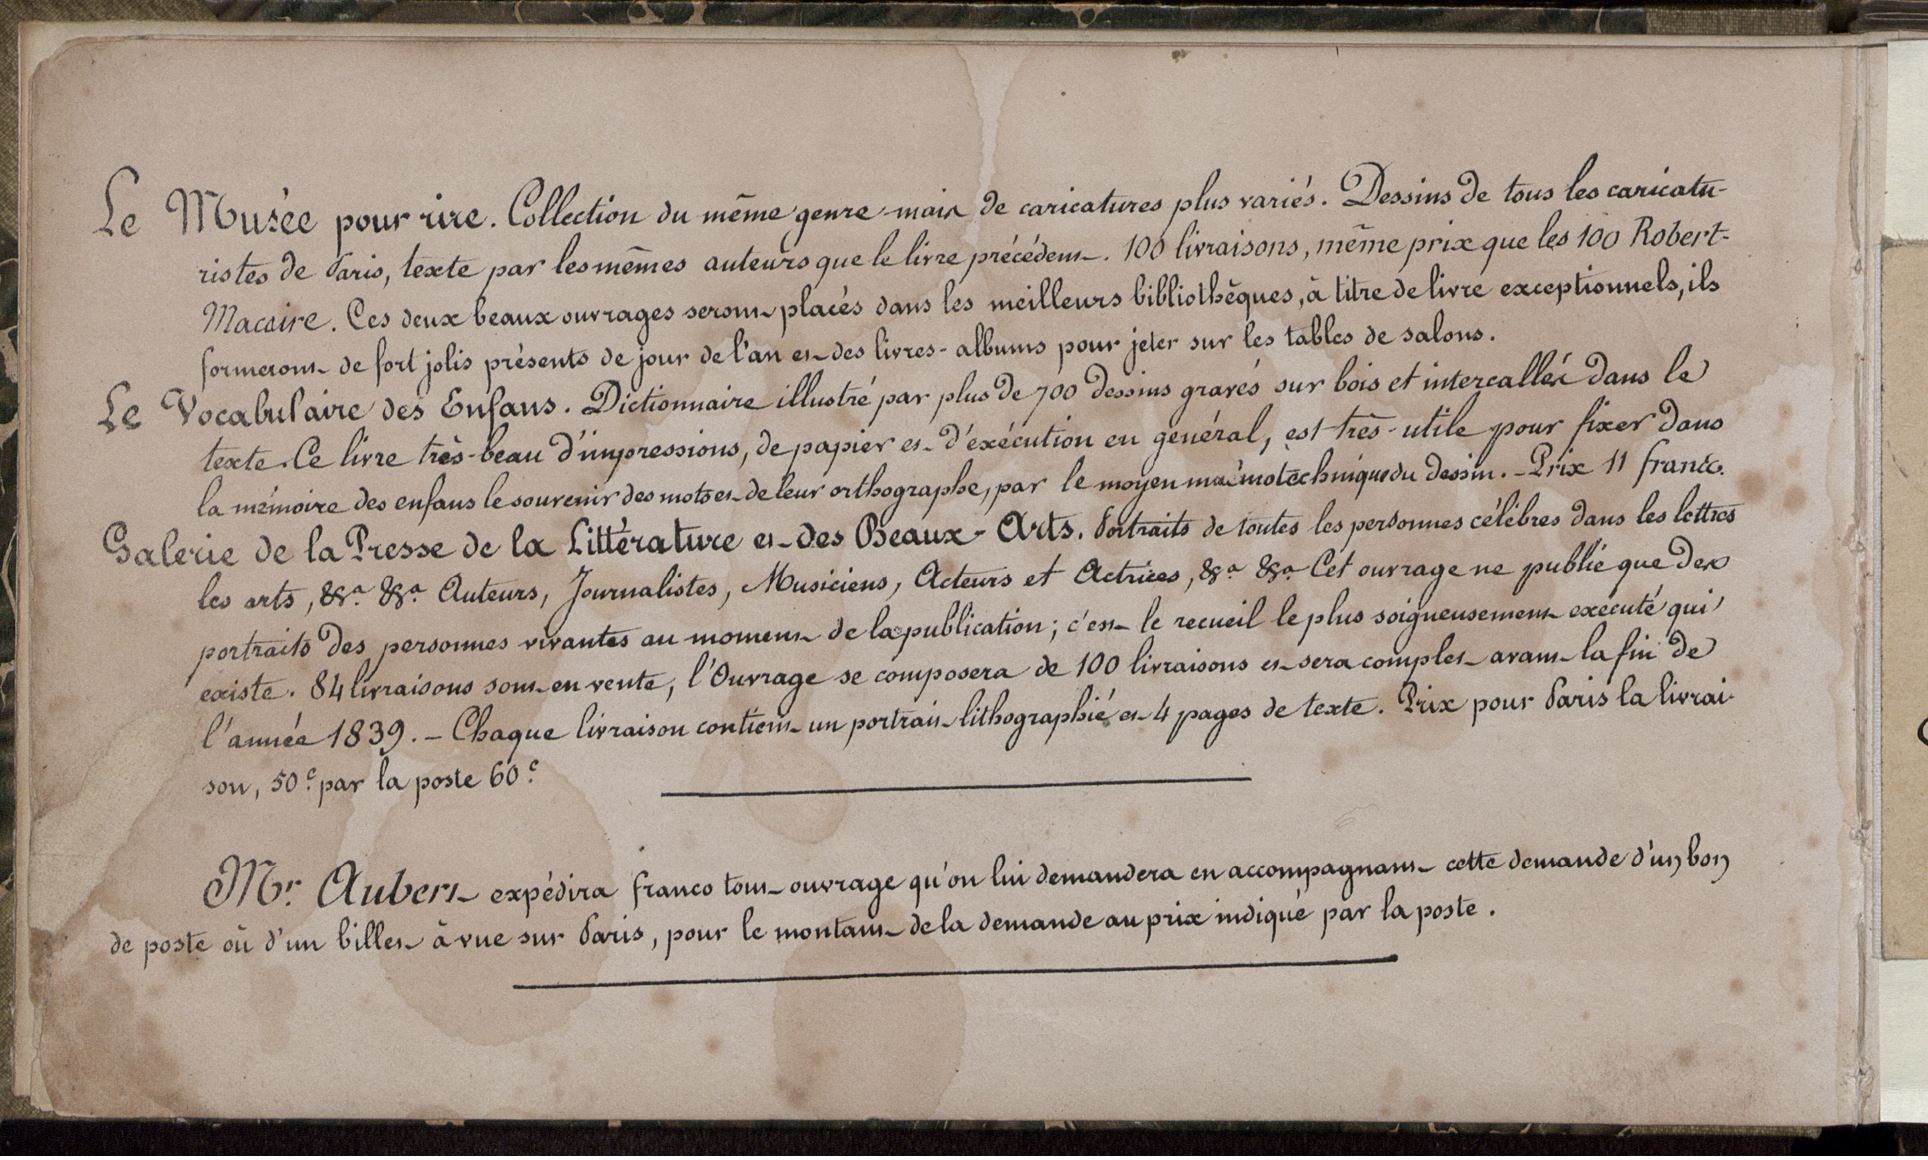 Le Musée pour rire. Collection du même genre mais de caricatures plus variés. Dessins de tous les caricatu-
ristes de Paris, texte par les mêmes auteurs que le livre précédent. 100 livraisons, même prix que les 100 Robert-
Macaire. Ces deux beaux ouvrages seront placés dans les meilleurs bibliothèques, à titre de livre exceptionnels, ils
formeront de fort jolis présents de jour de l'an et des livres-albums pour jeter sur les tables de salons.
Le Vocabulaire des Enfans. Dictionnaire illustré par plus de 700 dessins gravés sur bois et intercallés dans le
texte. Ce livre très-beau d'impressions, de papier et d'exécution en général, est très-utile pour fixer dans
la mémoire des enfans le souvenir des mots et de leur orthographe, par le moyen mnémotechnique du dessin. - Prix 11 francs.
Galerie de la Presse de la Littérature et des Beaux-Arts. Portraits de toutes les personnes célèbres dans les lettres
les arts, &a. &a. Auteurs, Journalistes, Musiciens, Acteurs et Actrices, &a. &a. Cet ouvrage ne publie que des
portraits des personnes vivantes au moment de la publication; c'est le recueil le plus soigneusement exécuté qui
existe. 84 livraisons sont en vente, l'Ouvrage se composera de 100 livraisons et sera complet avant la fin de
l'année 1839. - Chaque livraison contient un portrait lithographié et 4 pages de texte. Prix pour Paris la livrai-
son, 50c. par la poste 60c.
Mr. Aubert expédira franco tout ouvrage qu'on lui demandera en accompagnant cette demande d'un bon
de poste où d'un billet à vue sur Paris, pour le montant de la demande au prix indiqué par la poste.